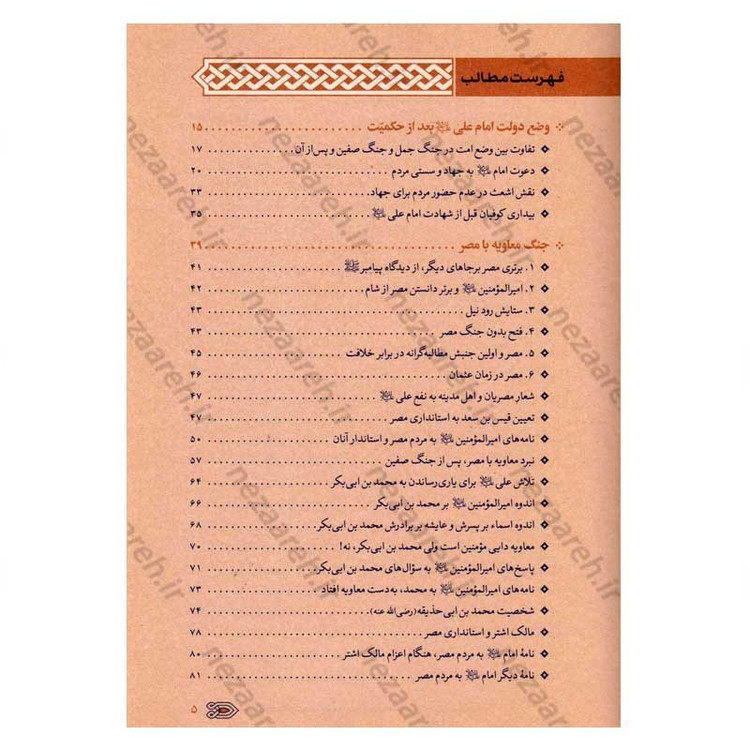 فهرست مطالب
وضع دولت امام علی ﷷ بعد از حکمیّت ۱۵
تفاوت بین وضع امت در جنگ جمل و جنگ صفین و پس از آن ۱۷
دعوت امام ﷷ به جهاد و سستی مردم ۲۰
نقش اشعث در عدم حضور مردم برای جهاد. ۳۳
بیداری کوفیان قبل از شهادت امام علی ۳۵
جنگ معاویه با مصر ۳۹
۱. برتری مصر برجاهای دیگر، از دیدگاه پیامبر ﷺ ۴۱
۲. امیرالمؤمنین و برتر دانستن مصر از شام ۴۲
۳. ستایش رود نیل ۴۳
۴. فتح بدون جنگ مصر ۴۳
۵. مصر و اولین جنبش مطالبه‌گرانه در برابر خلافت ۴۵
۶. مصر در زمان عثمان ۴۶
شعار مصریان و اهل مدینه به نفع علی ۴۷
تعیین قیس بن سعد به استانداری مصر ۴۷
نامه‌های امیرالمؤمنین به مردم مصر و استاندار آنان ۵۰
نبرد معاویه با مصر، پس از جنگ صفین ۵۷
تلاش علی برای یاری رساندن به محمد بن ابی‌بکر ۶۴
اندوه امیرالمؤمنین بر محمد بن ابی‌بکر ۶۶
اندوه اسماء بر پسرش و عایشه بر برادرش محمد بن ابی‌بکر ۶۸
معاویه دایی مؤمنین است ولی محمد بن ابی‌بکر، نه! ۷۰
پاسخ‌های امیرالمؤمنین به سؤال‌های محمد بن ابی‌بکر. ۷۱
نامه‌های امیرالمؤمنین به محمد، به‌دست معاویه افتاد ۷۳
شخصیت محمد بن ابی حذیفه (رضی الله عنه) ۷۴
مالک اشتر و استانداری مصر ۷۸
نامهٔ امام به مردم مصر، هنگام اعزام مالک اشتر ۸۰
نامهٔ دیگر امام به مردم مصر ۸۱
۵
nezaareh.ir